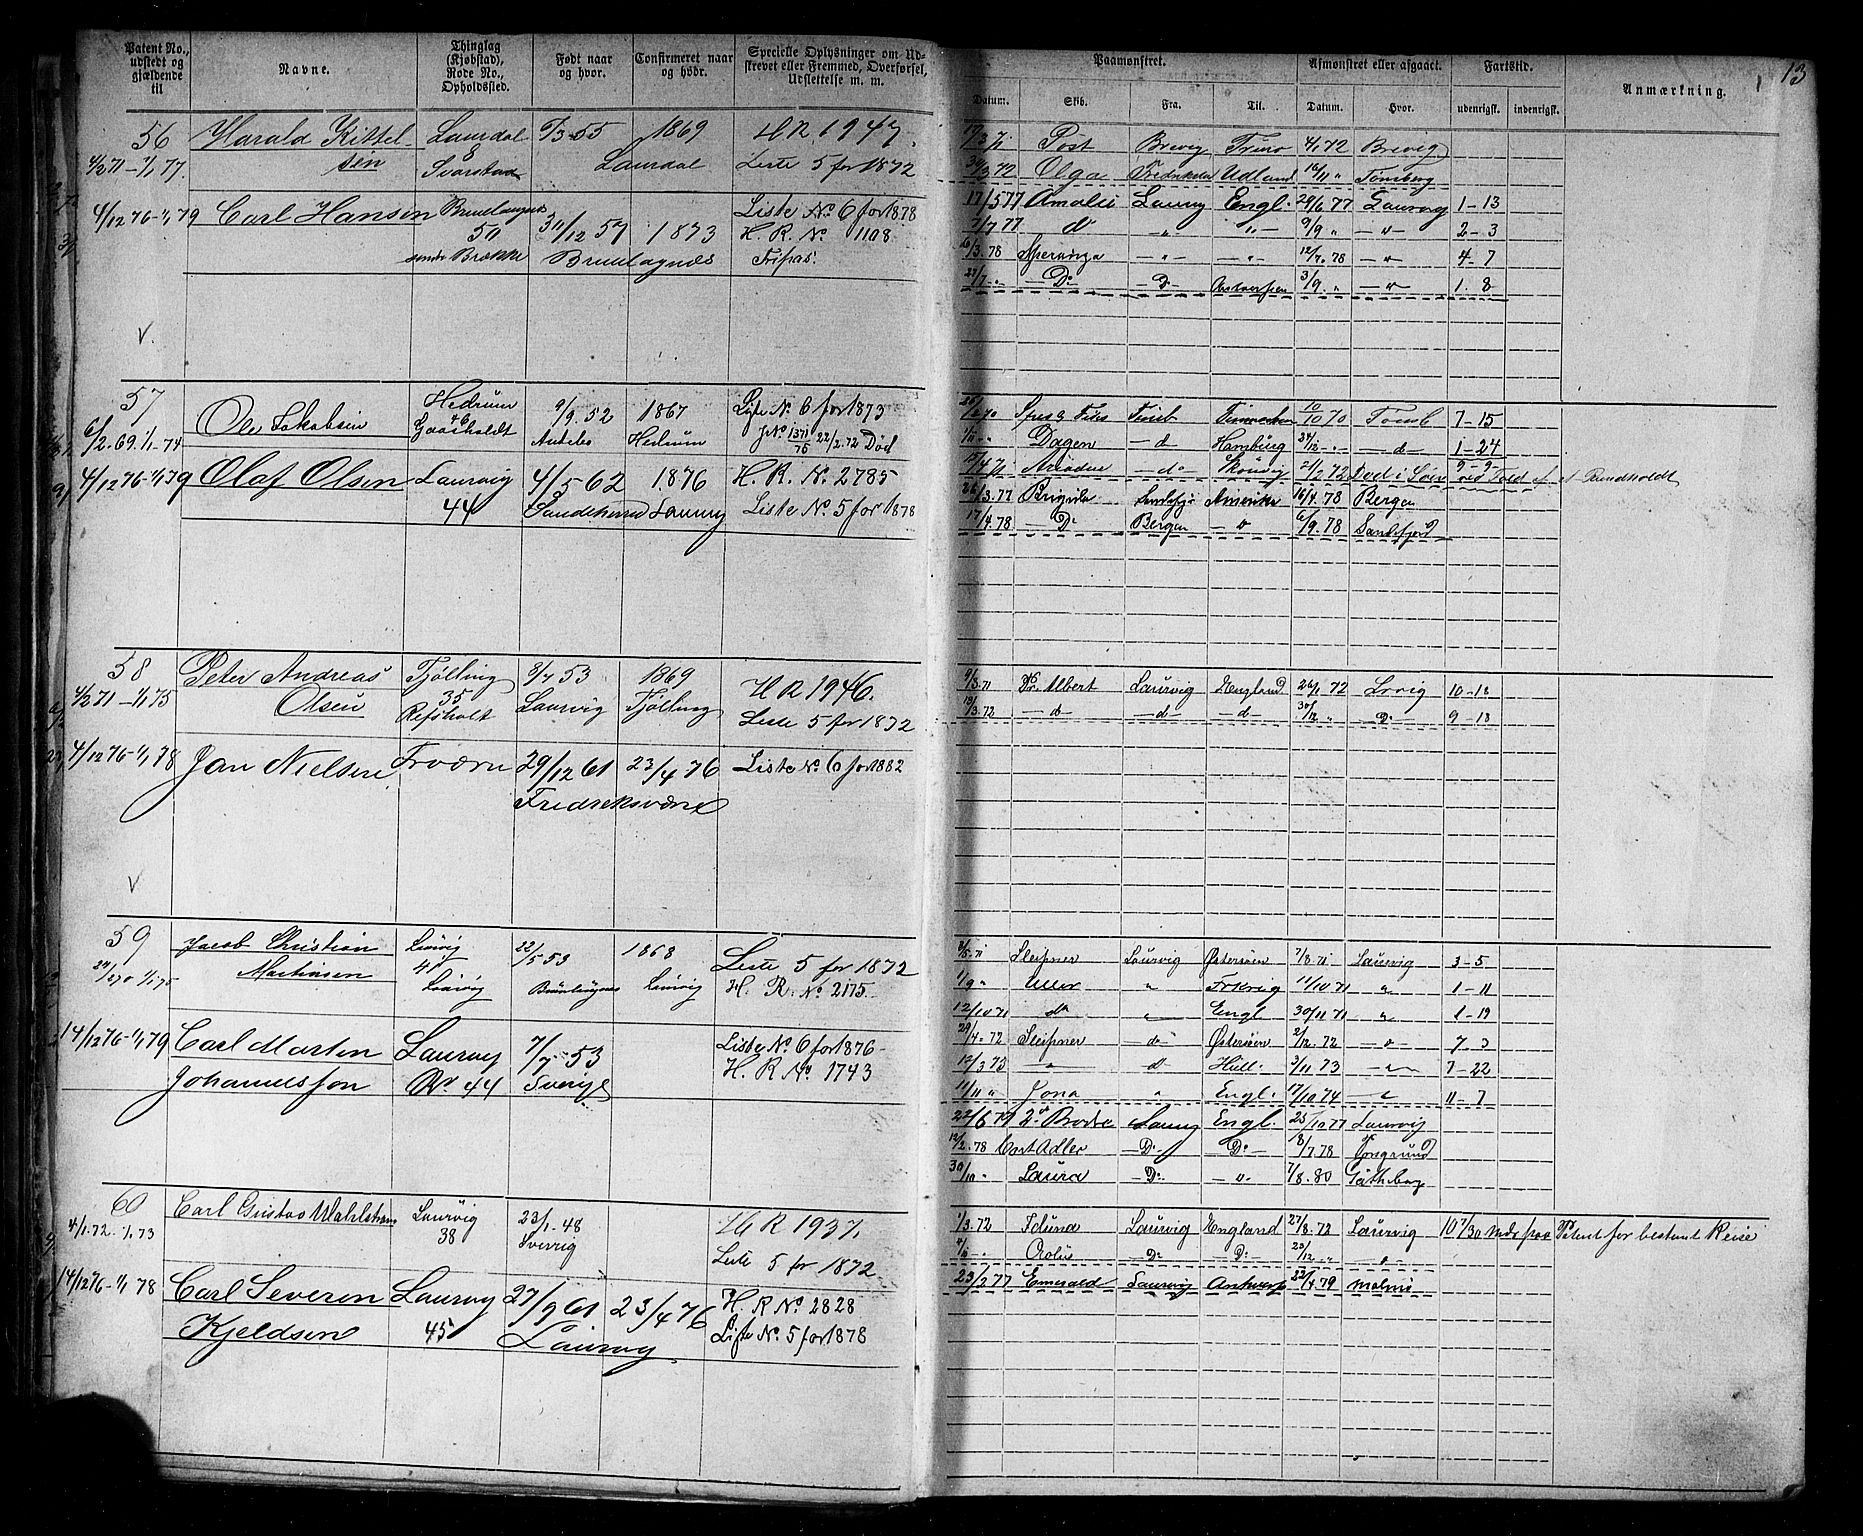 Patent No., udstedt og gjældende til
Navne.
Thinglag (Kjøbstad), Rode No., Opholdssted.
Født naar og hvor.
Confirmeret naar og hvor.
Specielle Oplysninger om Udskrevet eller Fremmed, Overførsel, Udslettelse m. m.
Paamønstret.
Afmønstret eller afgaaet.
Fartstid.
Anmærkning.
13
Datum.
Skib.
Fra.
Til.
Datum.
Hvor.
udenrigsk.
indenrigsk.
56 Harald Kittel- Laurdal 6/3 55 1869 HR. 1947.
4/2 71 - 1/1 77. sen 8 Svarstad Laurdal Liste 5 for 1872
4/12 76 - 1/1 79 Carl Hansen Brunlangnes 30/12 57 1873 Liste No 6 for 1878
50 H. R. No 1108
søndr Brække Brunlagnæs Fripas.
17/3 71 Post Brevig 4/1 72 Brevig
30/3 72 Olga Udland 16/11 " Tønsberg
17/5 77 Amalie Laurvig Engl. 29/6 77 Laurvig 1-13
7/7 77 d -"- "- 9/9 " -"- 2-3
6/3. 78 -"- -"- 12/7. 78 -"- 4-7
22/7 -"- Do D. Antverpen 3/9. " -"- 1. 8
V.
57 Ole Jakobsen Hedrum 9/9. 52 1867 Liste No 6 for 1873
6/2. 69. 1/1 - 74 Gaasholdt Hedrum JNo 1371/75 22/2. 72 Død
4/12 76 - 1/1 79 Olaf Olsen Laurvig 4/5 62 1876 H. R. No. 2785
44 Sandeherred Laurvig Liste No. 5 for 1878
10/10 70 Tønsb 7-15
Dagen -d- Hamburg -d- 1-24
15/4 71 Ariadne -do- 21/2 72
26/3. 77 Brigitte Amerika 16/4. 78 Bergen
17/4. 78 D. Bergen -"- 6/9. 78 Sandefjord
58 Peter Andreas Tjølling 8/7 53 1869 HR 1946.
4/2 71 - 1/1 75 Olsen 35 Refsholt Laurvig Tjølling Liste 5 for 1872
4/12 76 - 1/1 78 Jan Nielsen Frværn 29/12 61 23/4 76 Liste No. 6 for 1882
Fredreksværn
9/3. 71 Albert Laurvig England 26/1 72 Lrvig 10-18
13/3. 72 -d- -d- d- 30/12 " D. 9-18
V
59 Jacob Christian Laurvig 22/5 53 1868 Liste 5 for 1872
Martinsen 41 Laurvig Laurvig H. R. No 2175.
14/12 76 - 1/1 79 Carl Marten Laurvig 7/7 - 53 Liste No. 6 for 1876
Johannesson No 44 Sverige H. R. No. 1743
8/5. 71 Sleipner Laurvig Østersøen 7/8. 71 Laurvig 3-5
1/9 " Uller " 11/10 71 " 1-11
12/10 71 do " Engl 30/11 71 " 1-19
29/4. 72 Sleipner d Østersøen 2/12. 72 -"- 7. 3
12/3 73 -"- d Hull. 3/11. 73 -"- 7-22
11/11 " Jona " Engl. 17/10 74 -"- 11-7
22/6 77 2de Brødre Laurvig Engl. 25/10 77 Laurvig
12/2. 78 Cort Adler D. D. 8/7. 78 Porsgrund
30/10 " Laura D. -"- 7/8. 80 Gøtheborg
60 Carl Gustav Wahlstrøm Laurvig 23/1. 48 HR 1937.
4/1. 72. 1/1. 73 38 Sverrig Liste 5 for 1872
14/12 76 - 1/1 78 Carl Severin Laurvig 27/9 61 23/4 76 H. R No. 2828
Kjeldsen 45 Laurvig Liste No. 5 for 1878
1/3. 72 Iduna Laurvig England 27/8. 72 Laurvig 10 7/30 Mdr paa Patent for bestemt Reise
Æolus D. D. 23/12 " "
23/3 77 Emerald Laurvig Antwerp 23/4. 79 Malmø